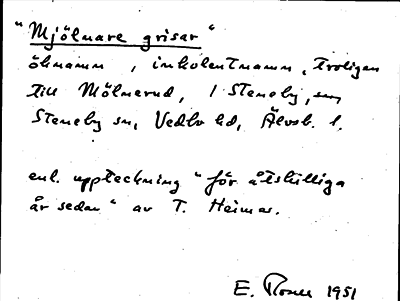 "Mjölnare grisar"
öknamn, inkolentnamn, troligen
till Mölnerud, i Steneby, sn,
Steneby sn, Vedbo hd, Älvsb. l.
enl. uppteckning "för åtskilliga
år sedan" av T. Heimer.
E. 1951